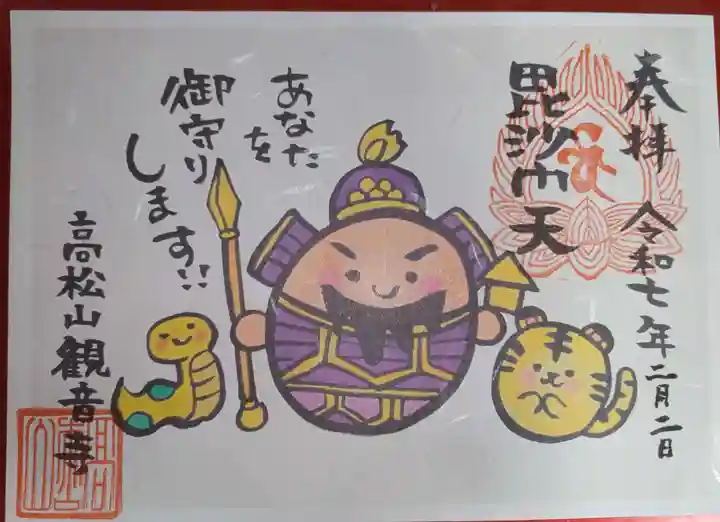 奉拝
令和七年二月二日
毘沙門天
あなたを
御守り
します!!
高松山観音寺